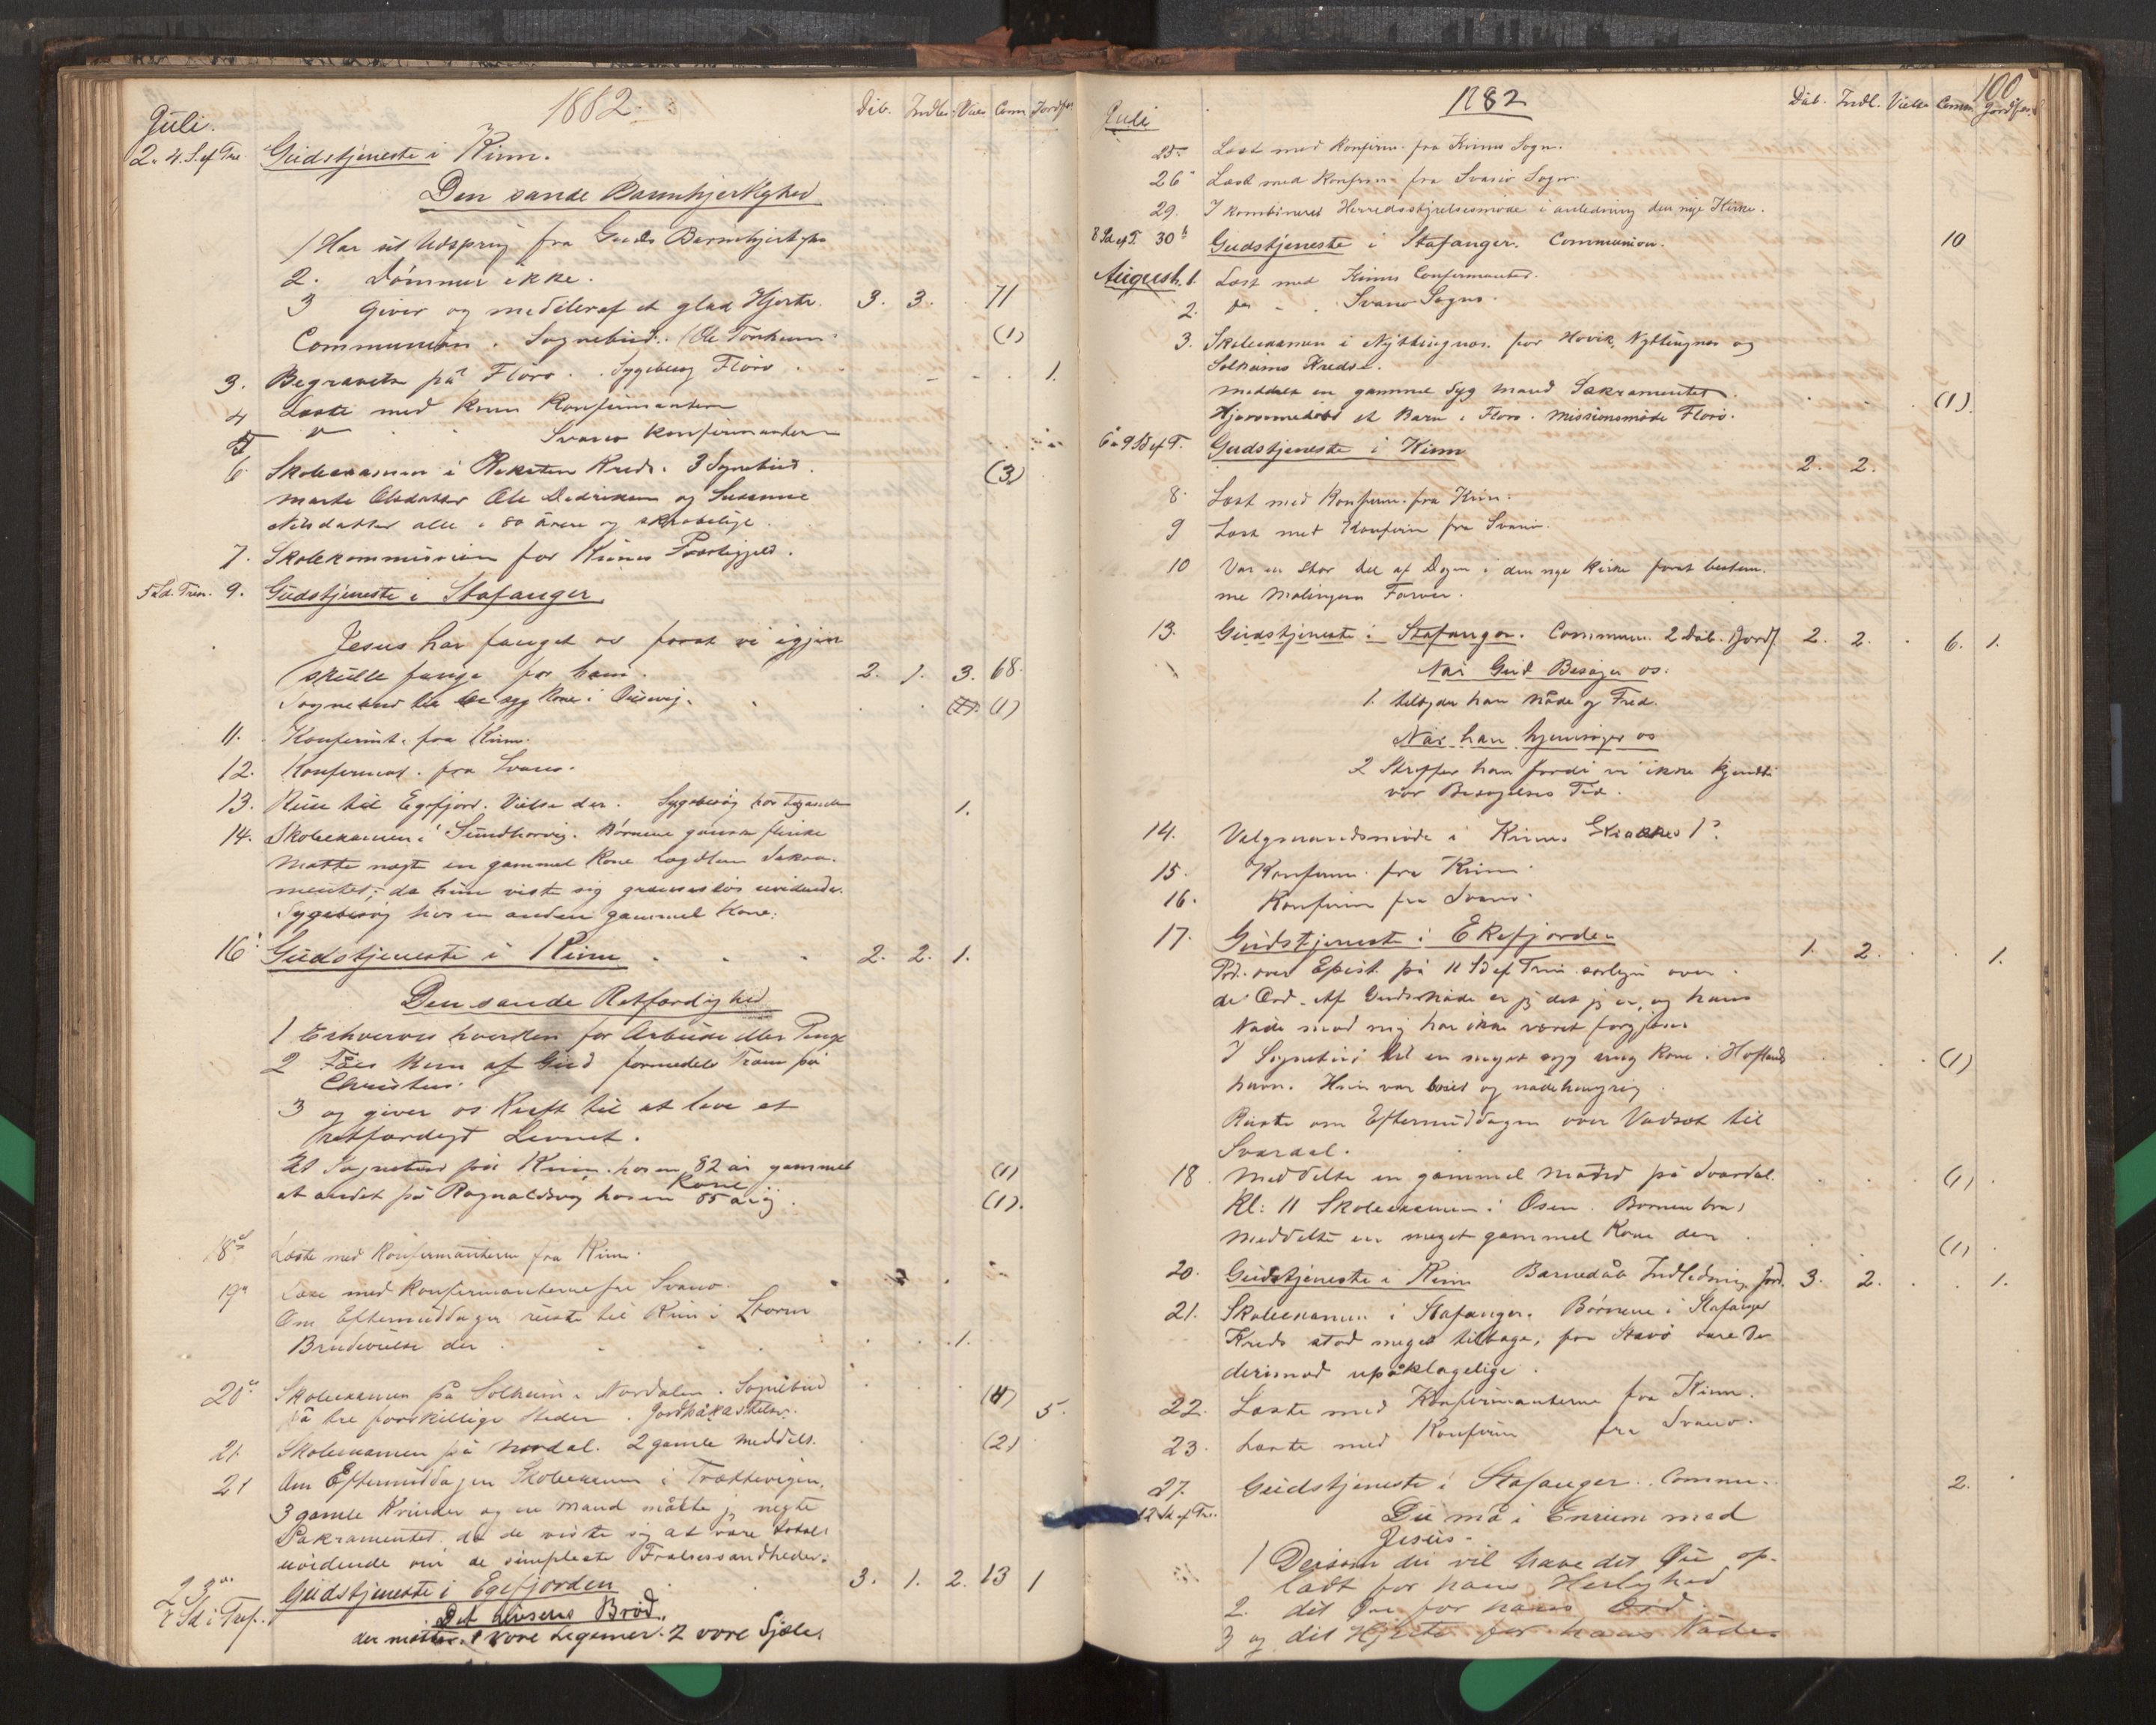 1882.
Juli.
Dåb. Indl. Vielse Com Jordf.
2. 4. S. ef Tre. Gudstjeneste i Kinn.
Den sande Barmhjertighed
1 Har sit Udspring fra Guds Barmhjertighed
2. Dömmer ikke.
3 Giver og meddeler af et glad Hjerte. 3. 3. 71
Communion. Sognebud. (1)
3. Begravelse på Florö. Sygebesög Florö. 1.
4 Læste med Kinn Konfirmanterne
5 " Svanö Konfirmanterne
6 Skoleexamen i Reksten Kreds. 3 Sognebud. (3)
Marte Olsdatter Ole Dedriksen og Susanne
Nilsdatter alle i 80 årene og skrøbelige.
7. Skolekommission for Kinns Præstegjeld.
5 Sd. Trin. 9. Gudstjeneste i Stafanger
Jesus har fanget os forat vi igjen
skulle fange for ham. 2. 1. 3. 68.
Sognebud til en syg Kone i (1)
11. Konfirmt. fra Kinn.
12. Konfirmat. fra Svanö.
13. Reise til Egefjord. Vielse der. Sygebesög 1.
14. Skoleexamen i Börnene ganske flinke
Måtte negte en gammel Kone Sakra-
mentet, da hun viste sig grændseløs uvidende.
Sygebesög hos en anden gammel Kone.
16 Gudstjeneste i Kinn 2. 2. 1.
Den sande Retfærdighed
1 Erhverves hverken for Arbeide eller Penge
2 Fåes kun af Gud formedelst Troen på
Christus.
3 og giver os Kraft til at leve et
retfærdigt Levnet.
Et Sognebud på Kinn hos en 82 år gammel (1)
et andet på Rognaldsvåg hos en 85 årig Kone. (1).
18 Læste med Konfirmanterne fra Kinn.
19 Læse med Konfirmanterne fra Svanö.
Om Eftermiddagen reiste til Kinn i Storm
Brudevielse der 1.
20 Skoleexamen på Solheim i Nordalen. Sognebud (4)
på tre forskjellige Steder. Jordpåkastelse. 5.
21. Skoleexamen på Nordal. 2 gamle meddelt. (2)
21 Om Eftermiddagen Skoleexamen i
3 gamle Kvinder og en Mand måtte jeg negte
Sakramentet, da de viste sig at være totalt
uvidende om de simpleste Frelsessandheder.
23 Gudstjeneste i Egefjorden 3. 1. 2. 13 1
7 Sd i Tref. Det Brød
der mætter 1 vore Legemer. 2 vore Sjæle.
100
1882
Juli
Dåb. Indl. Vielse Comm Jordfæst
25 Læst med Konfirm. fra Kinns Sogn.
26 Læst med Konfirm. fra Svanö Sogn.
29. I kombineret Herredsstyrelsesmøde i anledning den nye Kirke.
8 Sd ef T. 30 Gudstjeneste i Stafanger. Communion. 10
August. 1. Læst med Kinns Confirmanter.
2. " Svanö Sogns.
3. Skoleexamen i Nyttingnes for Hovik, Nyttingnes og
Solheims Kredse.
Meddelt en gammel syg Mand Sakramentet (1)
Hjemmedöbt et Barn i Florö. Missionsmøde Florö.
6 9 Sd ef T. Gudstjeneste i Kinn 2. 2.
8. Læst med Konfirm. fra Kinn.
9 Læst med Konfirm fra Svanö.
10 Var en stor Del af Dagen i den nye Kirke forat bestem-
me Malingens Farver.
13. Gudstjeneste i Stafanger. Commun. 2 Dåb. Jordf 2. 2. 6. 1.
Når Gud Besøger os.
1. tilbyder han Nåde og Fred.
Når han hjemsöger os
2 Straffer han fordi vi ikke kjendte
vår Besøgelses Tid.
14. Valgmandsmöde i Kinn.
15. Konfirm. fra Kinn.
16. Konfirm fra Svanö.
17. Gudstjeneste i Ekefjorden 1. 2. 1.
Præd. over Epist. på 11 Sd ef Trin særlig over
de Ord. Af Guds Nåde er jeg det jeg er, og hans
Nåde mod mig har ikke været forgjæves
I Sognebud til en meget syg ung Kone i (1)
havn. Hun var og nådehungrig.
Reiste om Eftermiddagen over Vadset til
Svardal.
18. Meddelte en gammel Mand på Svardal. (1)
Kl: 11 Skoleexamen i Osen. Börnene bra.
Meddelte en meget gammel Kone der (1)
20. Gudstjeneste i Kinn Barnedåb Indledning Jord. 3. 2. 1.
21. Skoleexamen i Stafanger. Börnene i Stafanger
Kreds stod meget tilbage, for Stavö vare de
derimod upåklagelige.
22. Læste med Konfirmanterne fra Kinn.
23. Læste med Konfirm fra Svanö.
27. Gudstjeneste i Stafanger. Commu. 2.
12 Sd ef Tre. Du må i Enrum med
Jesus.
1 Dersom du vil have dit Øie op-
ladt for hans Herlighed
2. dit Øre for hans Ord.
3 og dit Hjerte for hans Nåde.